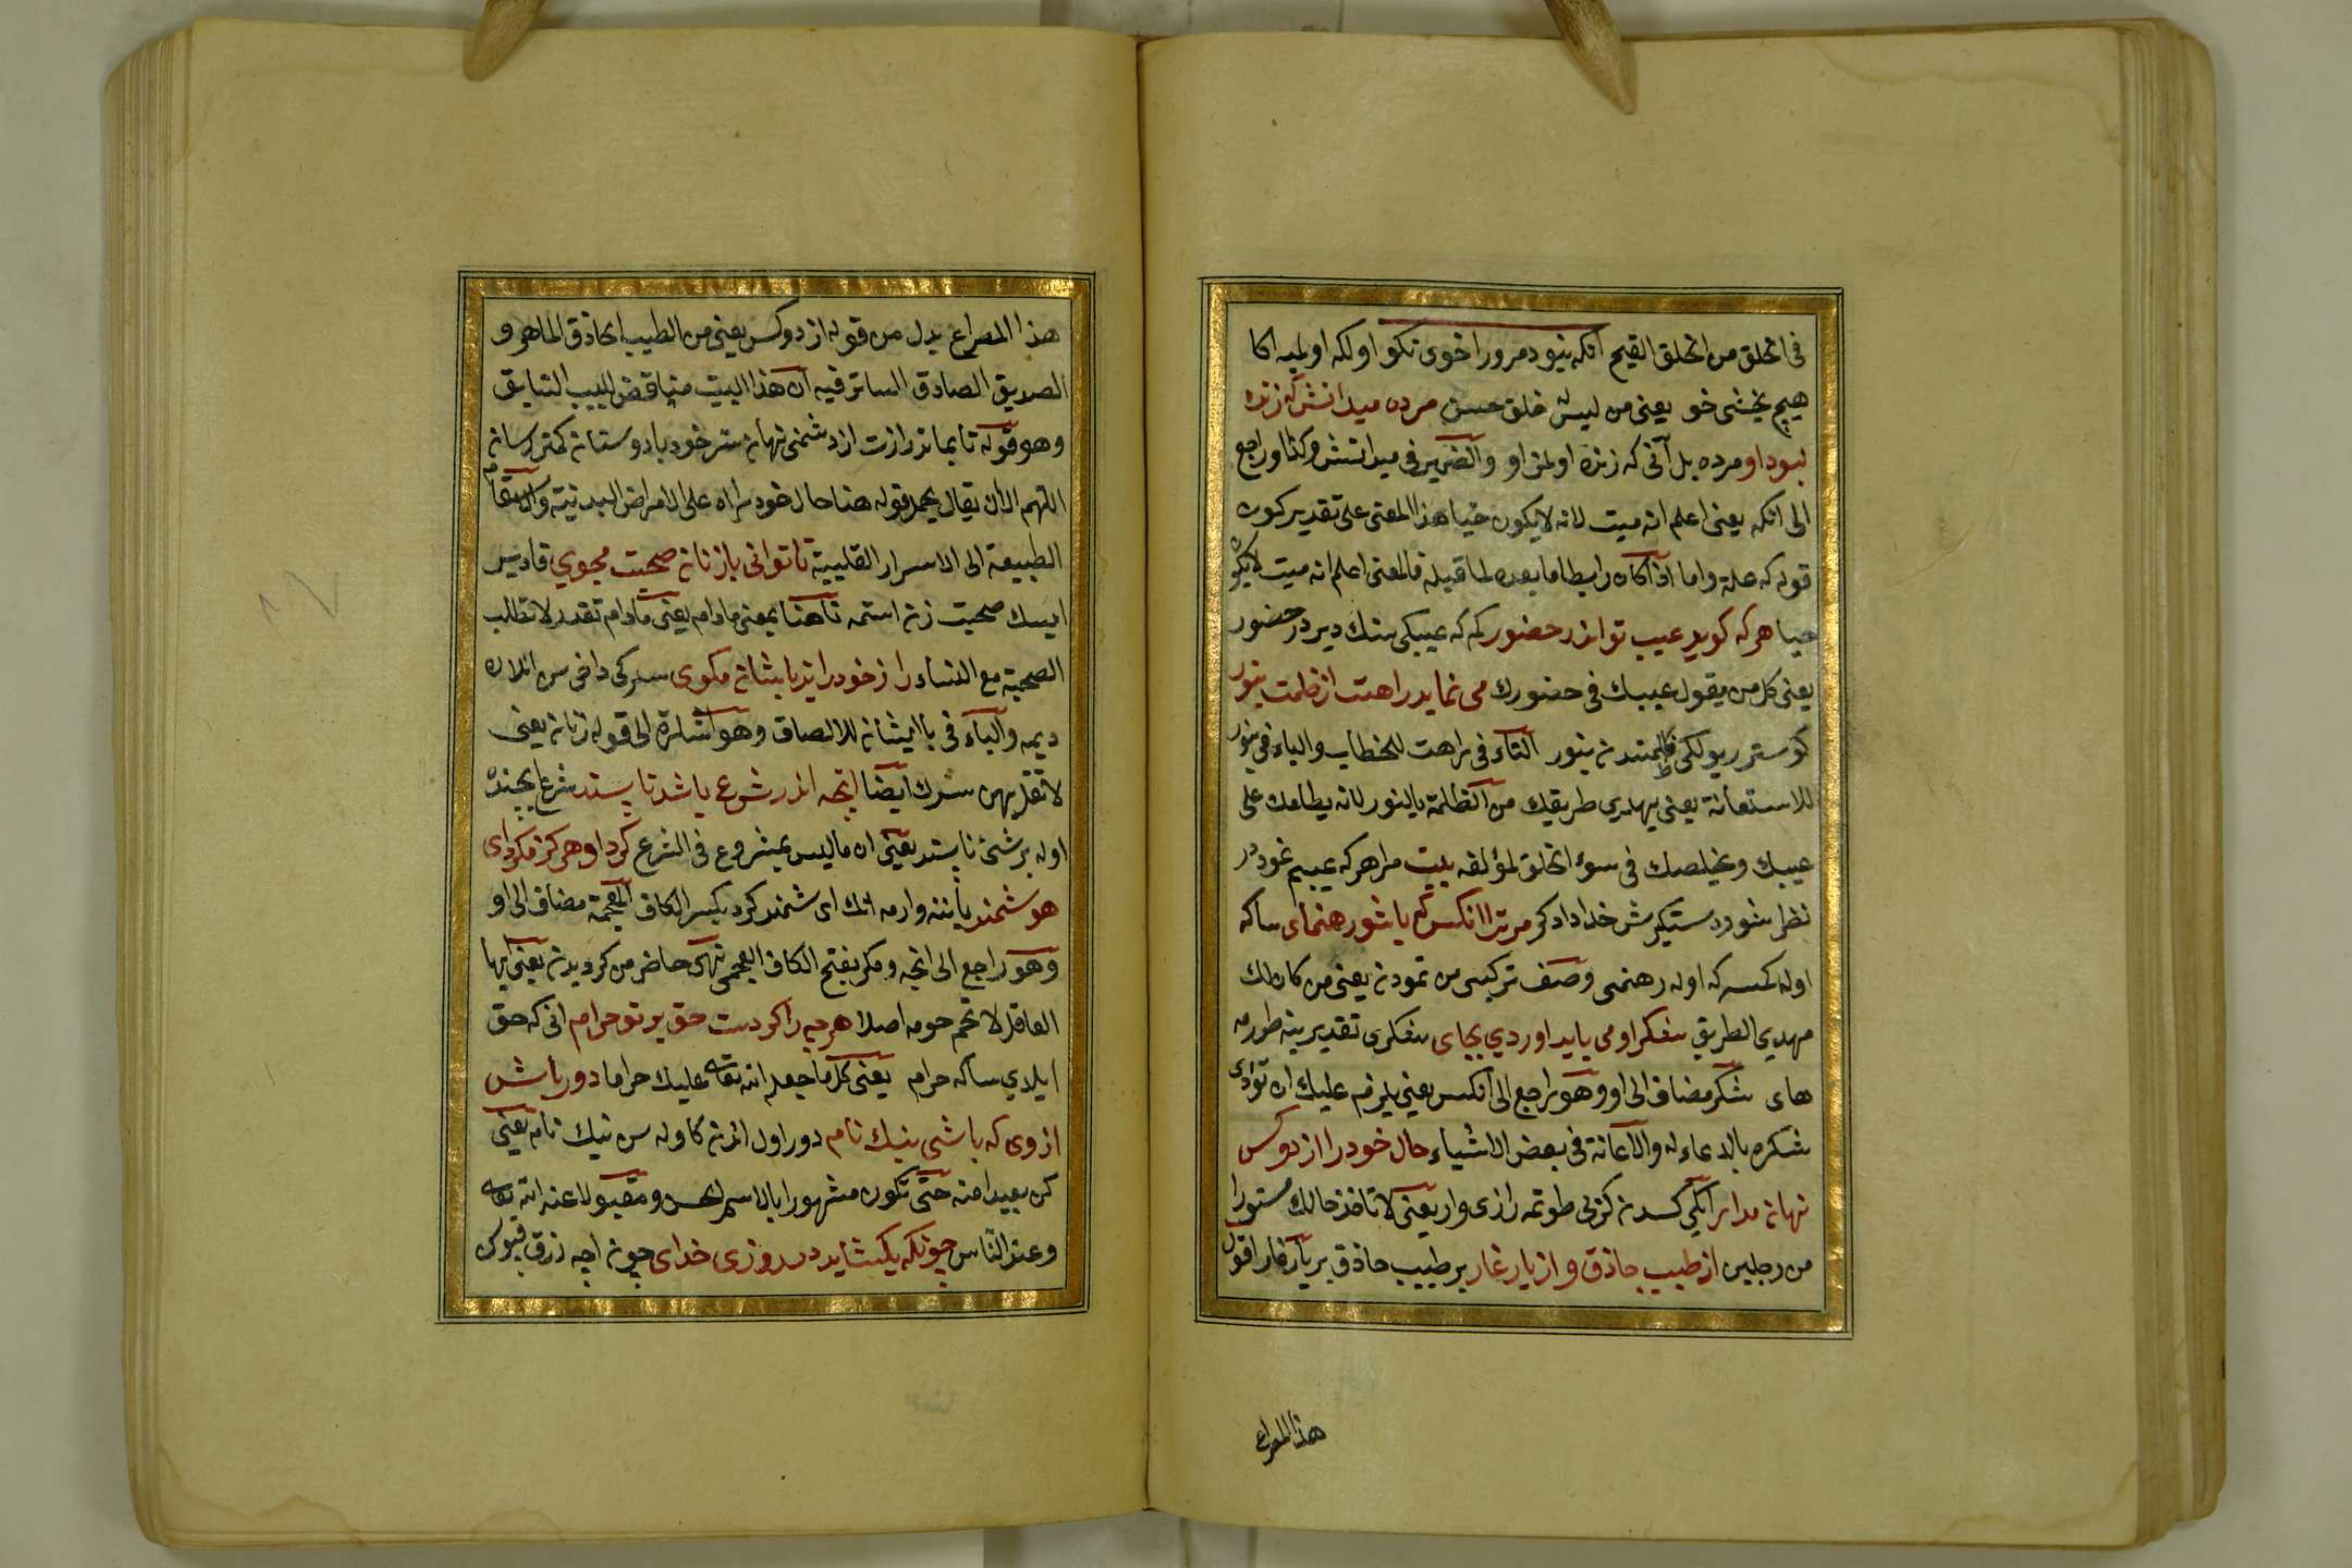 فى الخلق من الخلق القبيح آنكه نبود مرورا خوى نكو اولكه اولميه اكا
هيچ يخشى خو يعنى من ليس له خلق حسن مرده ميدانش كه زنده
نبود او مرده بل آنى كه زنده اولمز او والضمير فى ميدانش وكذا او راجع
الى آنكه يعنى اعلم انه ميت لانه لا يكون حيا هذا المعنى على تقدير كون
قوله كه علة واما اذا كان رابطا ما بعده لما قبله فالمعنى اعلم انه ميت لا يكون
حيا هركه كويد عيب تو اندر حضور كم كه عيبكى سنك دير در حضور
يعنى كل من يقول عيبك فى حضورك مى نمايد راهت از ظلمت بنور
كوستر ر يولكى ظلمتدن بنور التاء فى راهت للخطاب والباء فى بنور
للاستعانة يعنى يهدى طريقك من الظلمة بالنور لانه يطلعك على
عيبك ويخلصك فى سوء الخلق لمؤلفه بيت مرا هركه عيبم نمود در
نظر شود دستكيرش خدا دادكر مر ترا انكس كه باشد رهنماى ساكه
اوله كمسه كه اوله رهنمى وصف تركيبى من نمودن يعنى من كان لك
مهدى الطريق شكر او مى بايد اوردى بجاى شكرى تقدير ينه طورمه
هاى شكر مضاف الى او وهو راجع الى آنكس يعنى يلزم عليك ان تؤدى
شكره بالدعاء له والاعانة فى بعض الاشياء حال خود را از دوكس
نهان مدار ايكى كسدن كزلى طوتمه رازى وار يعنى لا تاخذ حالك مستورا
من رجلين از طبيب حاذق و از يار غار بر طبيب حاذق بر يار غار اقول
هذا المصراع
هذا المصراع بدل من قوله از دوكس يعنى من الطبيب الحاذق الماهر و
الصديق الصادق الساتر فيه ان هذا البيت مناقض للبيت السابق
وهو قوله تا بماند رازت از دشمن نهان سر خود با دوستان كمتر رسان
اللهم الا ان يقال يحمل قوله هنا حال خود را على الامراض البدنية والاسقام
الطبيعة لا الى الاسرار القلبية تا توانى با زنان صحبت مجوي قادر
ايسك صحبت زن استمه تا هنا بمعنى مادام يعنى مادام تقدر لا تطلب
الصحبة مع النساء راز خود را نيز با ايشان مكوى سركى داخى سن انلاره
ديمه والباء فى با ايشان للالصاق وهو اشارة الى قوله زنان يعنى
لا تقل لهن سرك ايضا انچه اندر شرع باشد نا پسند شرع ايچنده
اوله بر شئ نا پسند يعنى ان ما ليس بمشروع فى الشرع كرد او هركز مكرد اى
هوشمند ياننه وارمه انك اى هوشمند كرد بكسر الكاف العجمة مضاف الى او
وهو راجع الى انچه ومكرد بفتح الكاف العجمى نهى حاضر من كرديدن يعنى ايها
العاقل لا تحم حومه اصلا هرچه را كردست حق بر تو حرام انى كه حق
ايلدي ساكه حرام يعنى كل ما جعل الله تعالى عليك حراما دور باش
از وى كه باشى نيك نام دور اول اندن كا وله سن نيك نام يعنى
كن بعيدا منه حتى تكون مشهورا بالاسم الحسن ومقبولا عند الله تعالى
وعند الناس چونكه بكشايد در روزى خداى چون اچه رزق قپوسن